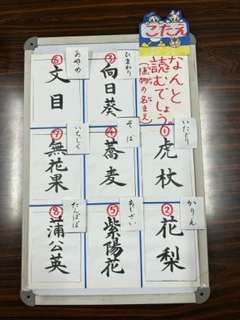 こたえ
なんと
読むでしょう。
(植物の名まえ)
①
虎杖
いたどり
②
花梨
かりん
③
向日葵
ひまわり
④
蕎麦
そば
⑤
紫陽花
あじさい
⑥
文目
あやめ
⑦
無花果
いちじく
⑧
蒲公英
たんぽぽ